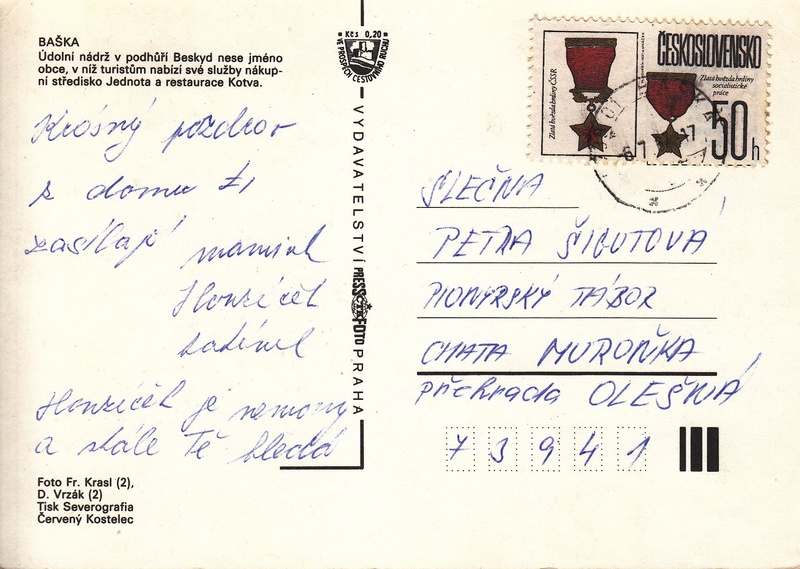 BAŠKA
Údolní nádrž v podhůří Beskyd nese jméno
obce, v níž turistům nabízí své služby nákup-
ní středisko Jednota a restaurace Kotva.
Kčs 0,20
VE PROSPĚCH CESTOVNÍHO RUCHU
ČESKOSLOVENSKO
Zlatá hvězda hrdiny ČSSR
Zlatá hvězda hrdiny
socialistické
práce
50h
Krásný pozdrav
z domu Ti
zasílají mamink
Honzíček
tatínek
Honzíček je nemocný
a stále Tě hledá
VYDAVATELSTVÍ PRESSFOTO PRAHA
SLEČNA
PETRA ŠIGUTOVÁ
PIONÝRSKÝ TÁBOR
CHATA MUROŇKA
přehrada OLEŠNÁ
73941
Foto Fr. Krasl (2),
D. Vrzák (2)
Tisk Severografia
Červený Kostelec